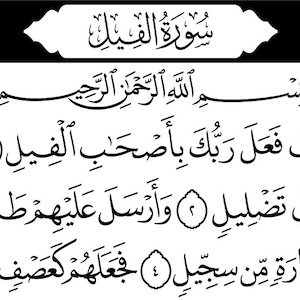 سُورَةُ الْفِيلِ
بِسْمِ اللَّهِ الرَّحْمَٰنِ الرَّحِيمِ
فَعَلَ رَبُّكَ بِأَصْحَابِ الْفِيلِ
تَضْلِيلٍ ٢ وَأَرْسَلَ عَلَيْهِمْ طَ
ارَةٍ مِّن سِجِّيلٍ ٤ فَجَعَلَهُمْ كَعَصْفٍ